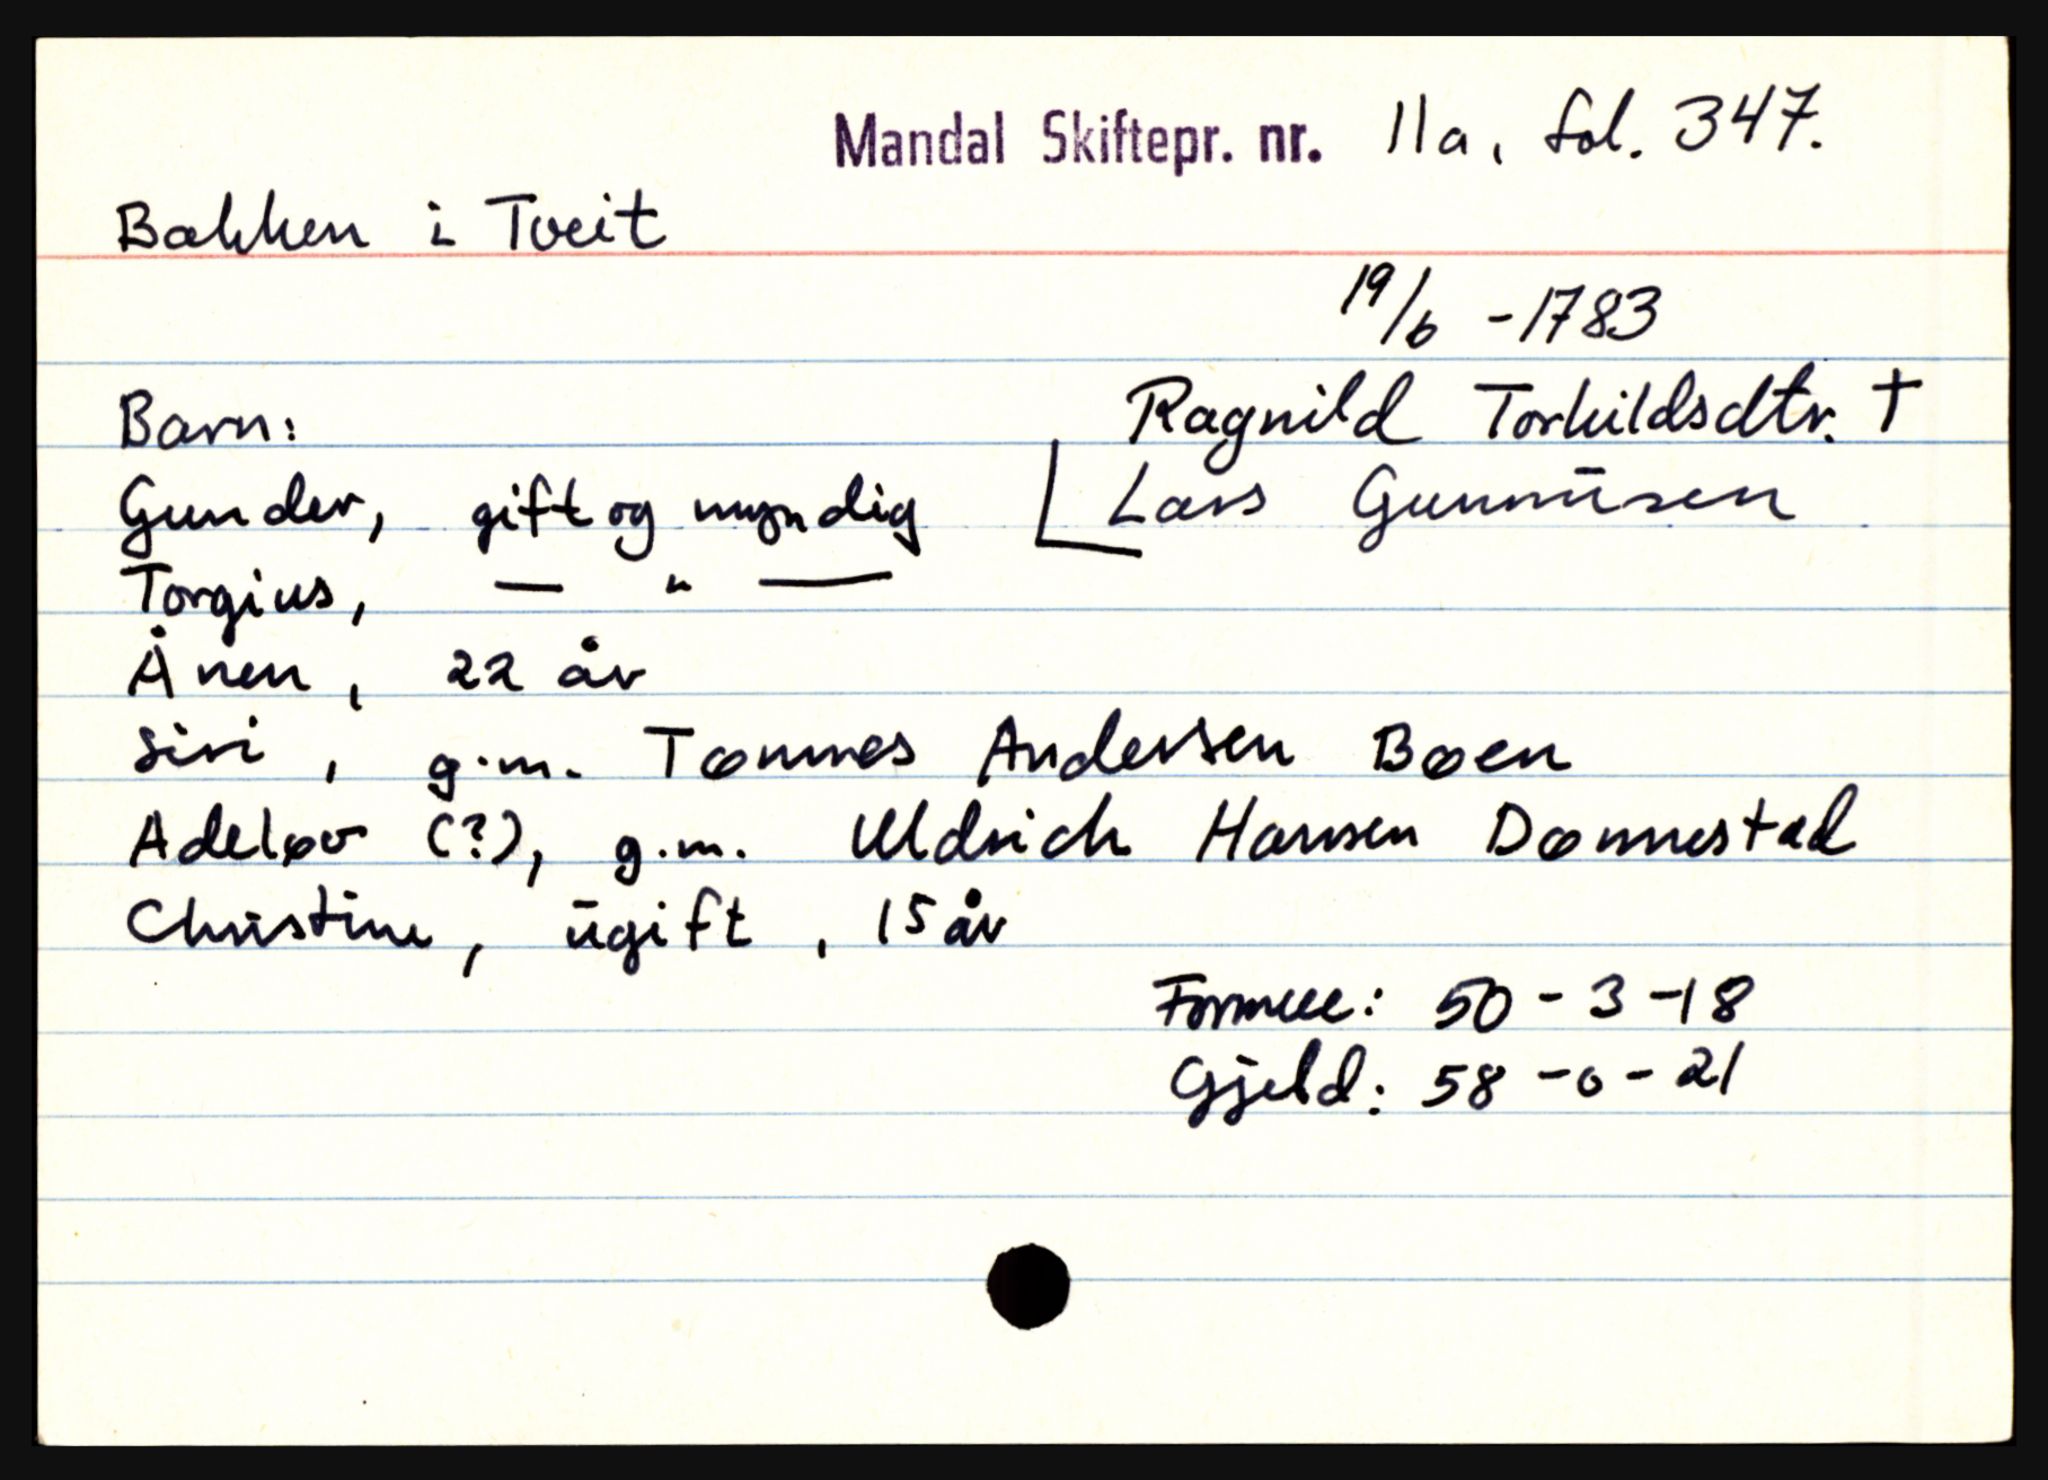 Mandal Skiftepr. nr. 11a, fol. 347.
Bakken i Tveit
19/6 - 1783
Ragnild Torkildsdtr. †
Lars Gunnūsen
Barn:
Gunder, gift og myndig
Torgius, — " —
Ånen, 22 år
Siri, g.m. Tønnes Andersen Bøen
Adeløv (?), g.m. Uldrich Hansen Dønnestad
Christine, ūgift, 15 år
Formue: 50 - 3 - 18
Gjeld: 58 - 0 - 21